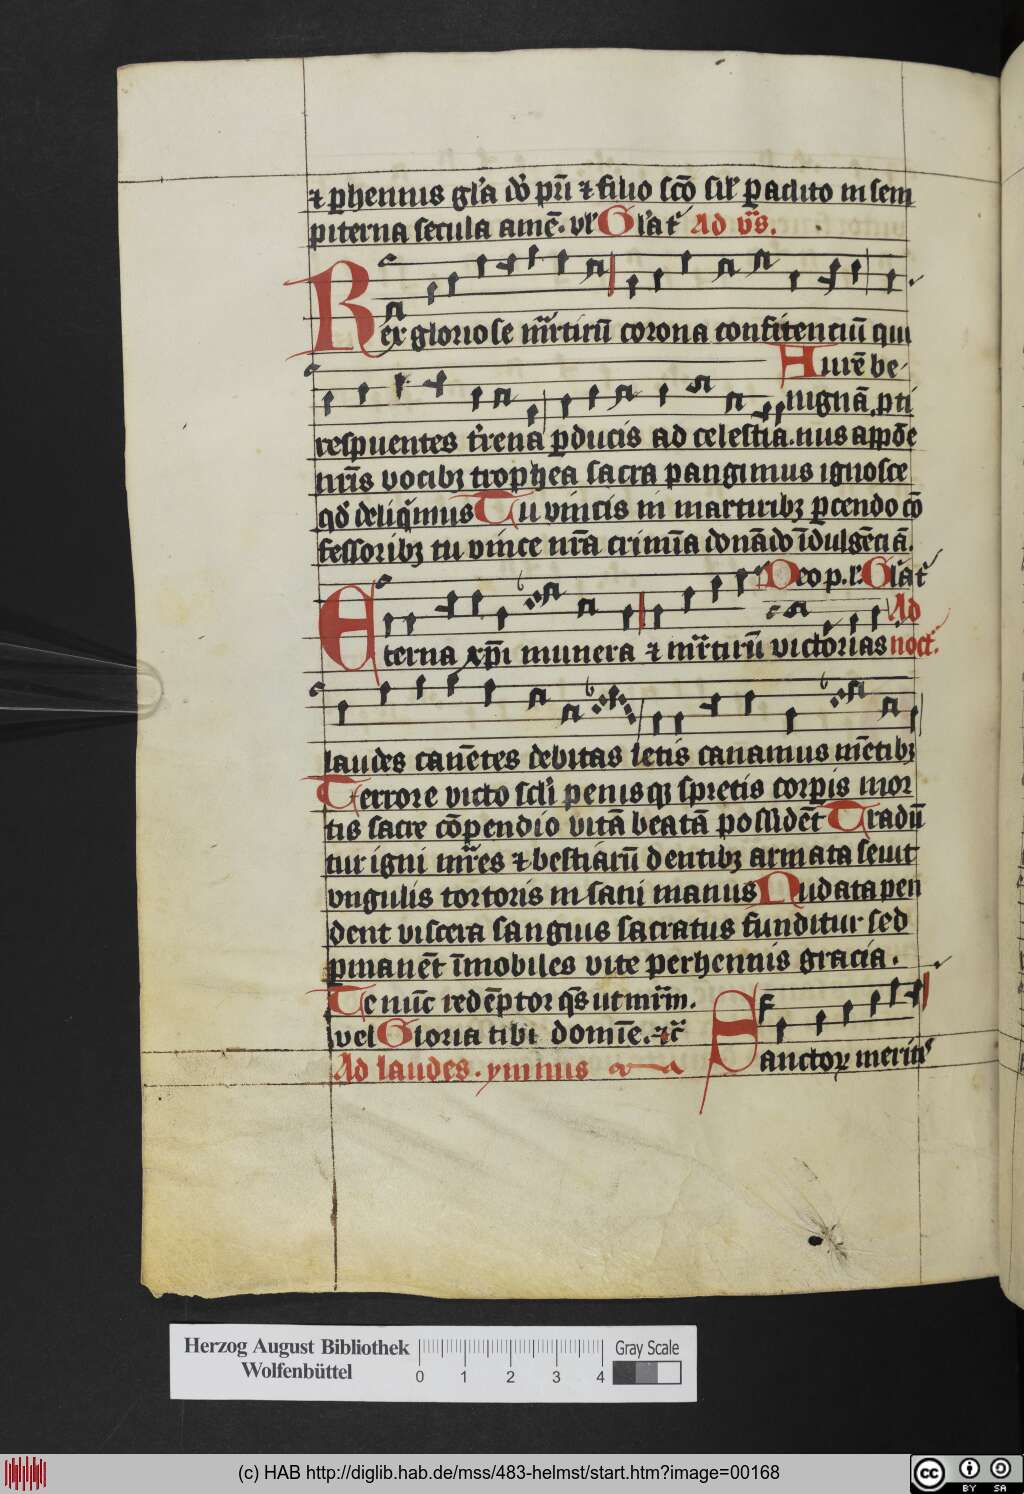 ⁊ ꝑhennis gl̄a dō pr̄i ⁊ filio sc̄o sil̄ ꝑaclito in sem
piterna secula amē. vl̄ Gl̄at̄ Ad v̄s.
Rex gloriose mr̄tirū corona confitenciū qui
Aurē be
nignā ꝓti
respuentes tr̄rena ꝑducis ad celestia. nus appōe
nr̄is vocibꝫ trophea sacra pangimus ignosce
qd̄ deliqᷓmus Tu vincis in martiribꝫ ꝑcendo cō
fessoribꝫ tu vince nr̄a crimīa donādo īdulgēciā.
Deo p. l̄. Gl̄at̄
Eterna xp̄i munera ⁊ mr̄tirū victorias Ad noct̄.
laudes canētes debitas letis canamus mētibꝫ
Terrore victo scl̄i penisqꝫ spretis corpis mor
tis sacre cōpendio vitā beatā possidēt Tradū
tur igni mr̄es ⁊ bestiarū dentibꝫ armata seuit
vngulis tortoris insani manus Nudata pen
dent viscera sanguis sacratus funditur sed
ꝑmanēt īmobiles vite perhennis gracia.
Te nūc redēptor qs̄ ut mr̄im.
vel Gloria tibi domīe. ⁊c̄
Sanctoꝝ meritis
Ad laudes. ymnus
Herzog August Bibliothek
Wolfenbüttel
0 1 2 3 4
Gray Scale
(c) HAB http://diglib.hab.de/mss/483-helmst/start.htm?image=00168
cc BY SA